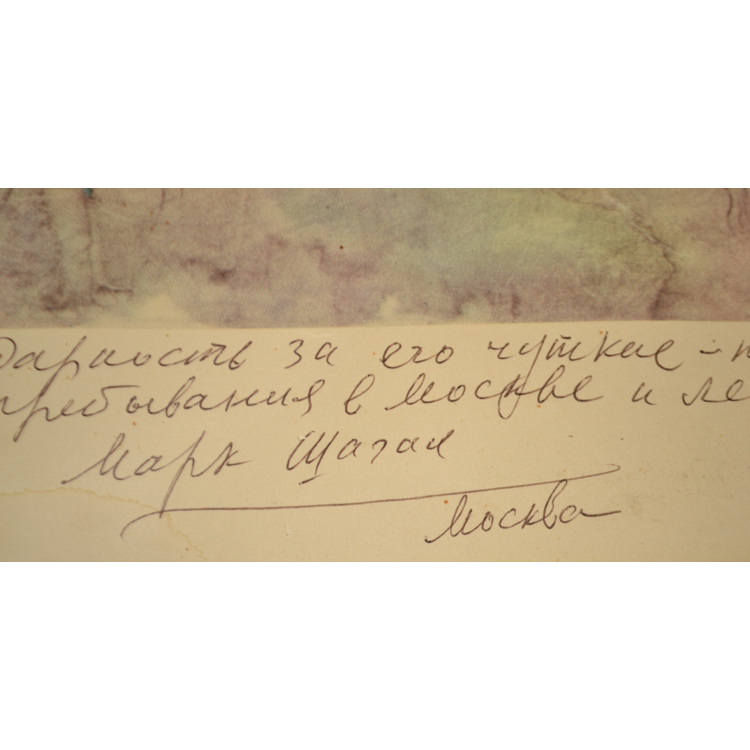 дарность за его чуткие - п
пребывания в Москве и ле
Марк Шагал
Москва